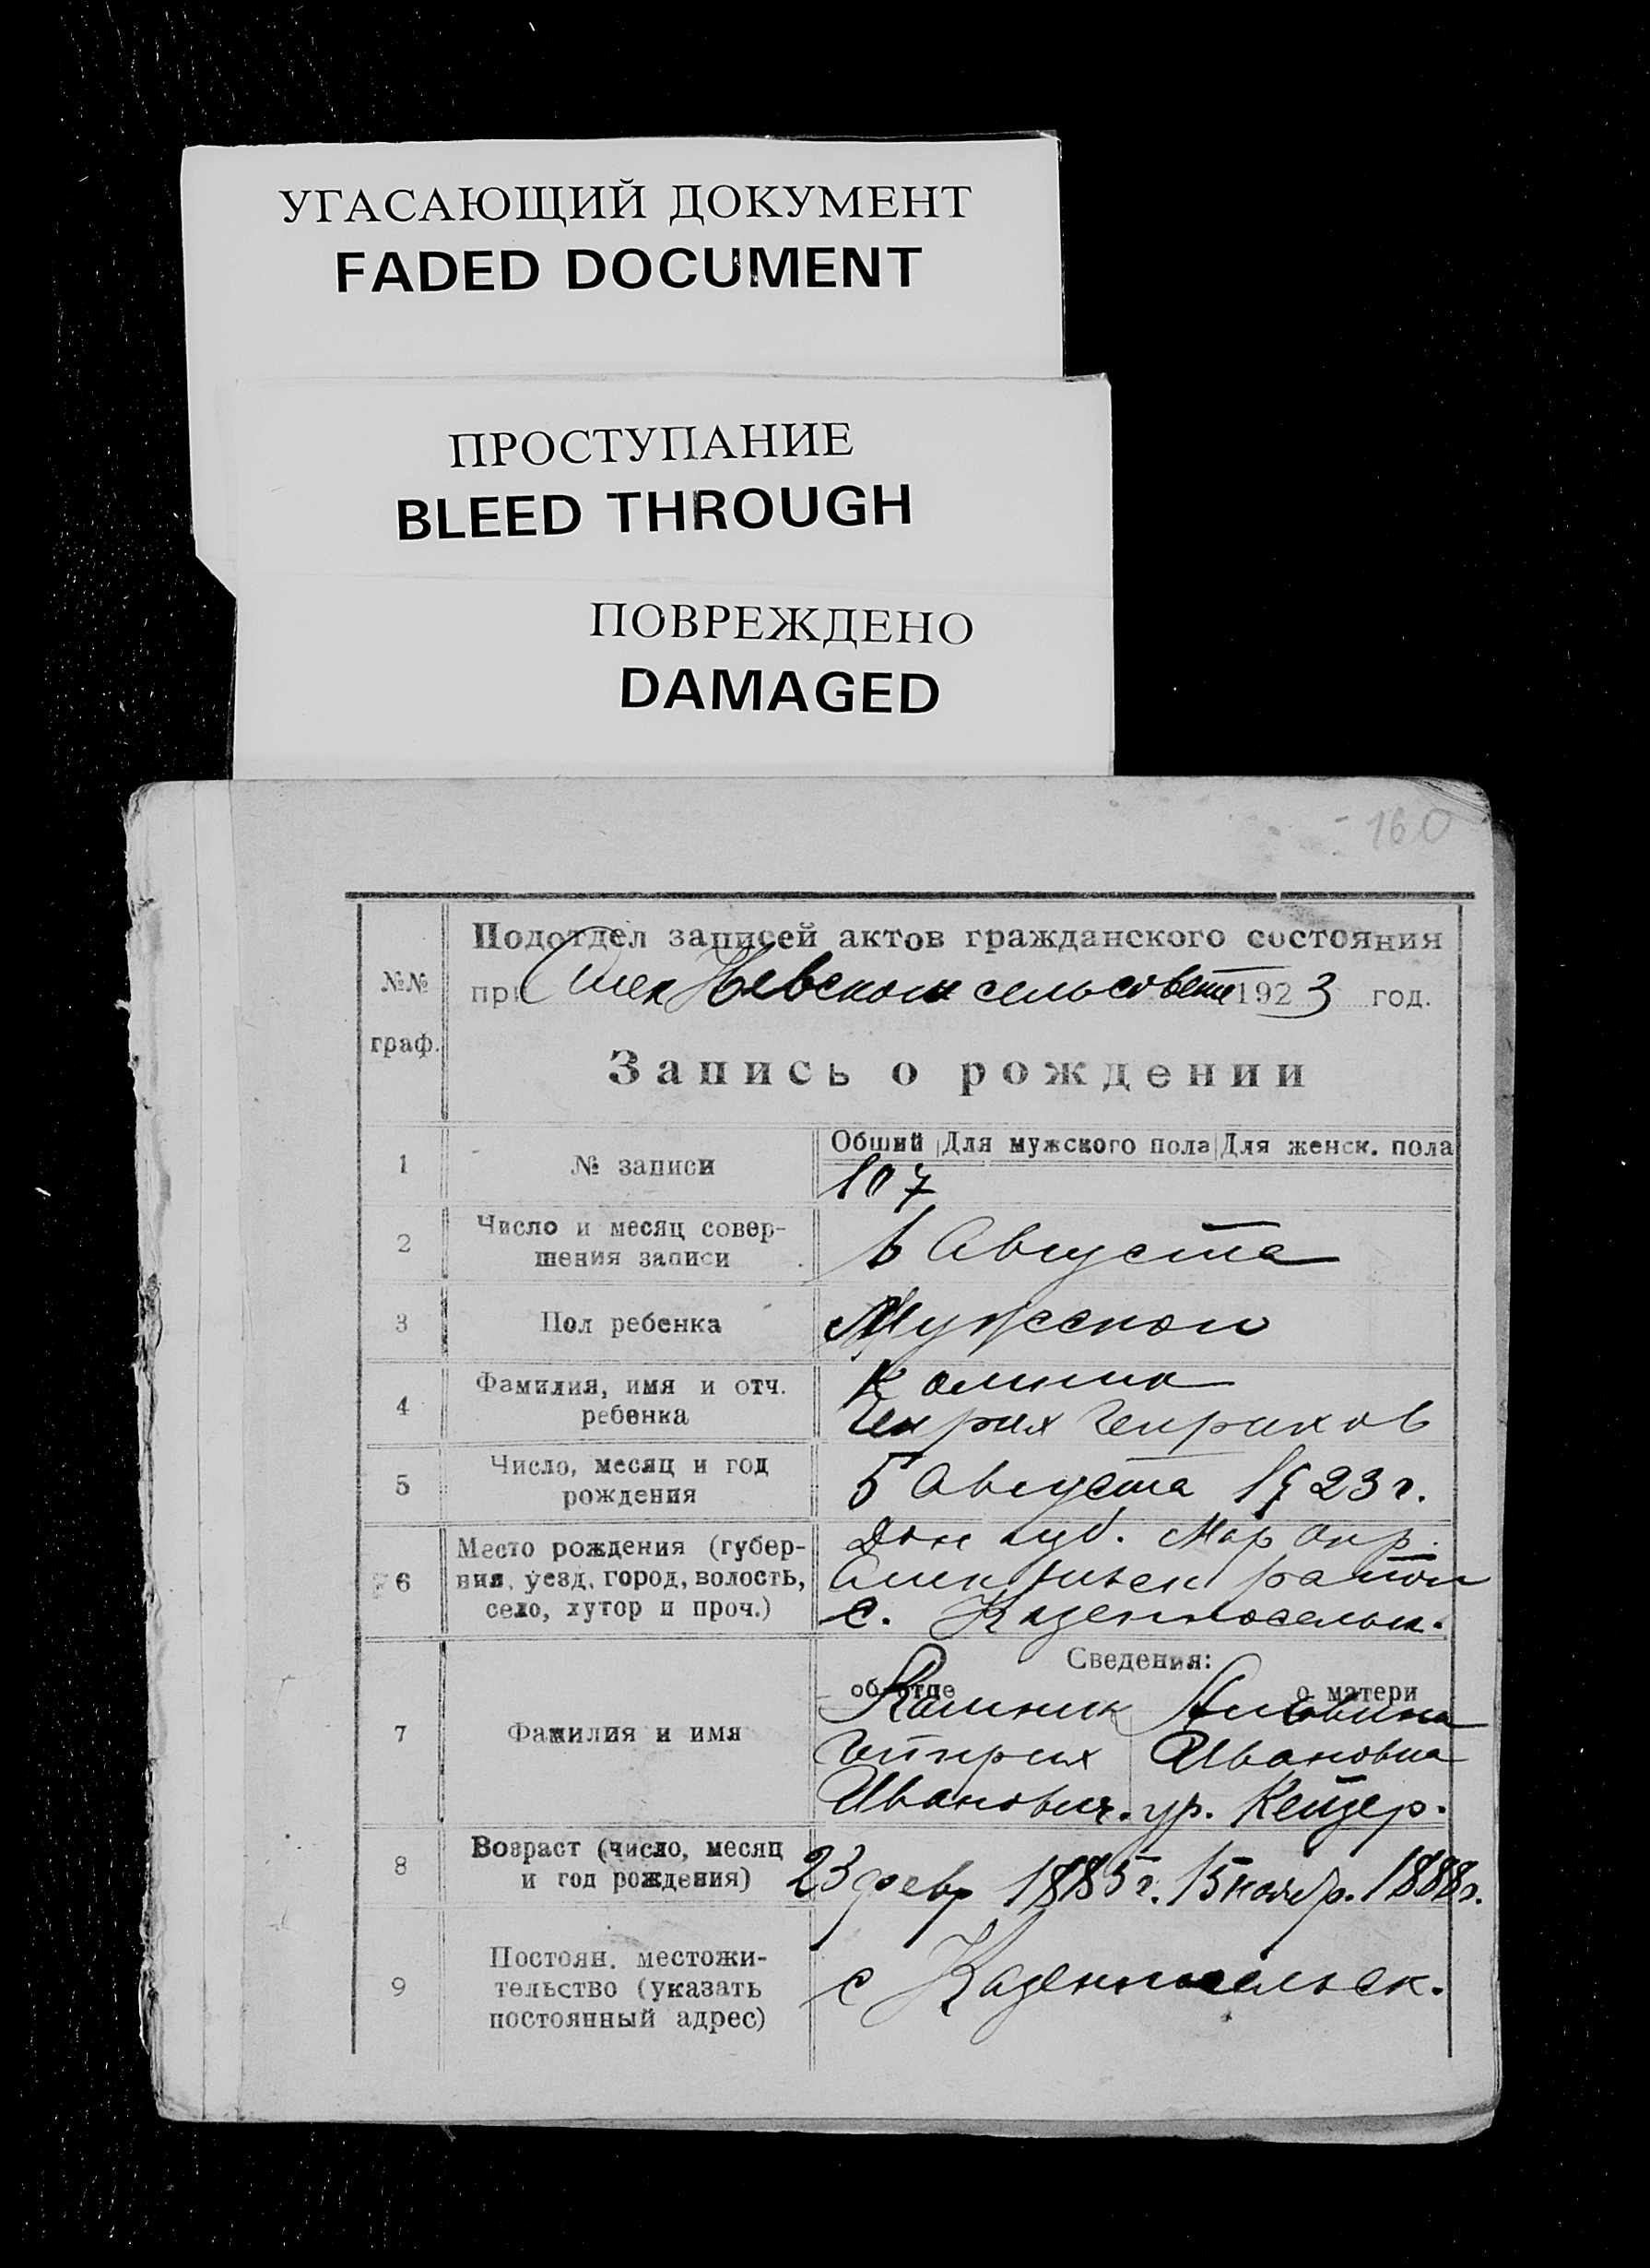 УГАСАЮЩИЙ ДОКУМЕНТ
FADED DOCUMENT
ПРОСТУПАНИЕ
BLEED THROUGH
ПОВРЕЖДЕНО
DAMAGED
160
№№ граф.
Подотдел записей актов гражданского состояния
при Алек Невском сельсовете 1923 год.
Запись о рождении
1 № записи Общий Для мужского пола Для женск. пола
107
2 Число и месяц совер-
шения записи
6 Августа
3 Пол ребенка Мужской
4 Фамилия, имя и отч.
ребенка
Генрих Генрихов
5 Число, месяц и год
рождения
5 Августа 1923 г.
6 Место рождения (губер-
ния, уезд, город, волость,
село, хутор и проч.)
Дон губ. Мар окр.
район
с. Казенносельск.
Сведения:
об отце о матери
7 Фамилия и имя
Генрих Ивановна
Иванович. ур. Кейзер.
8 Возраст (число, месяц
и год рождения)
23 февр 1885 г. 15 ноябр. 1888 г.
9 Постоян. местожи-
тельство (указать
постоянный адрес)
с Казенносельск.